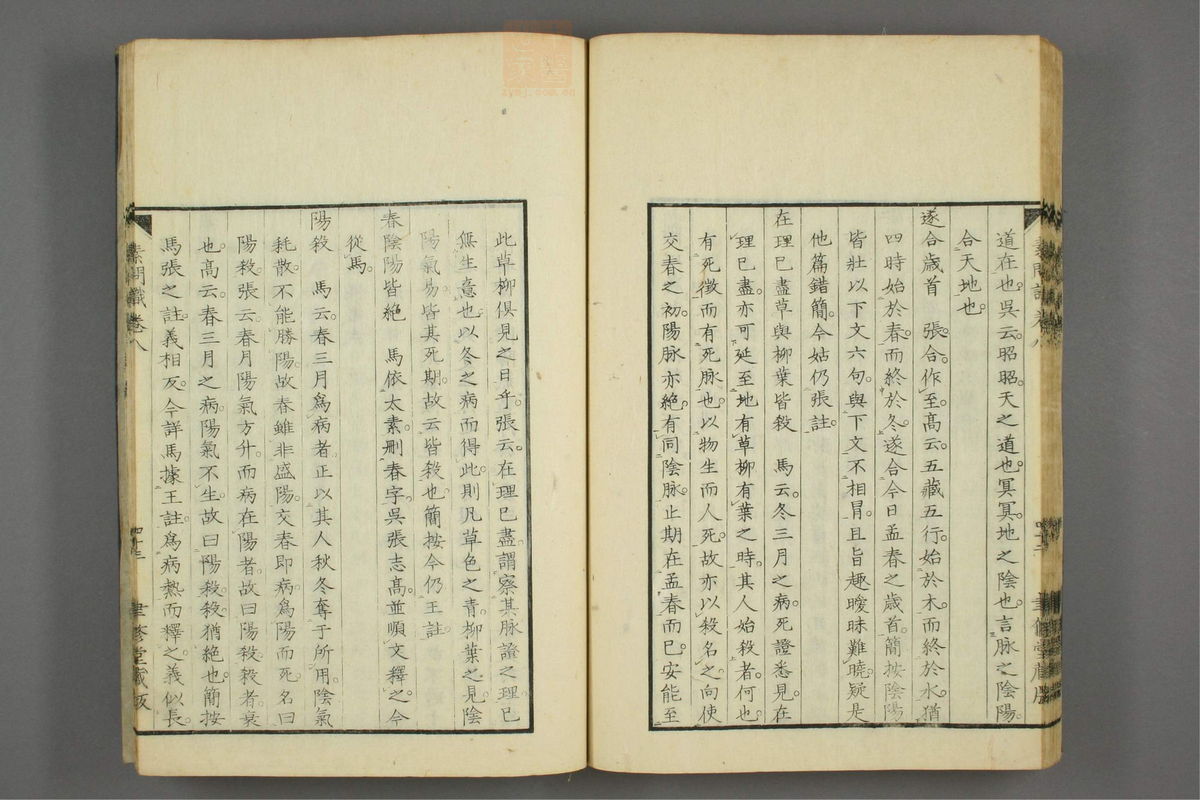 道在也吳云昭昭天之道也冥冥地之陰也言脉之陰陽
合天地也
遂合歲首 張合作至高云五藏五行始於木而終於水猶
四時始於春而終於冬遂合今日孟春之歲首簡按陰陽
皆壯以下文六句與下文不相冐且旨趣曖昧難曉疑是
他篇錯簡今姑仍張註
在理已盡草與柳葉皆殺 馬云冬三月之病死證悉見在
理已盡亦可延至地有草柳有葉之時其人始殺者何也
有死徴而有死脉也以物生而人死故亦以殺名之向使
交春之初陽脉亦絶有同陰脉止期在孟春而已安能至
素問識 卷八
四十三 聿修堂藏版
此草柳俱見之日乎張云在理已盡謂察其脉證之理已
無生意也以冬之病而得此則凡草色之青柳葉之見陰
陽氣易皆其死期故云皆殺也簡按今仍王註
春陰陽皆絶 馬依太素刪春字吳張志高並順文釋之今
從馬
陽殺 馬云春三月爲病者正以其人秋冬奪于所用陰氣
耗散不能勝陽故春雖非盛陽交春即病爲陽而死名曰
陽殺張云春月陽氣方升而病在陽者故曰陽殺殺者衰
也高云春三月之病陽氣不生故曰陽殺殺猶絶也簡按
馬張之註義相反今詳馬據王註爲病熱而釋之義似長
素問識 卷八
四十三 聿修堂藏版